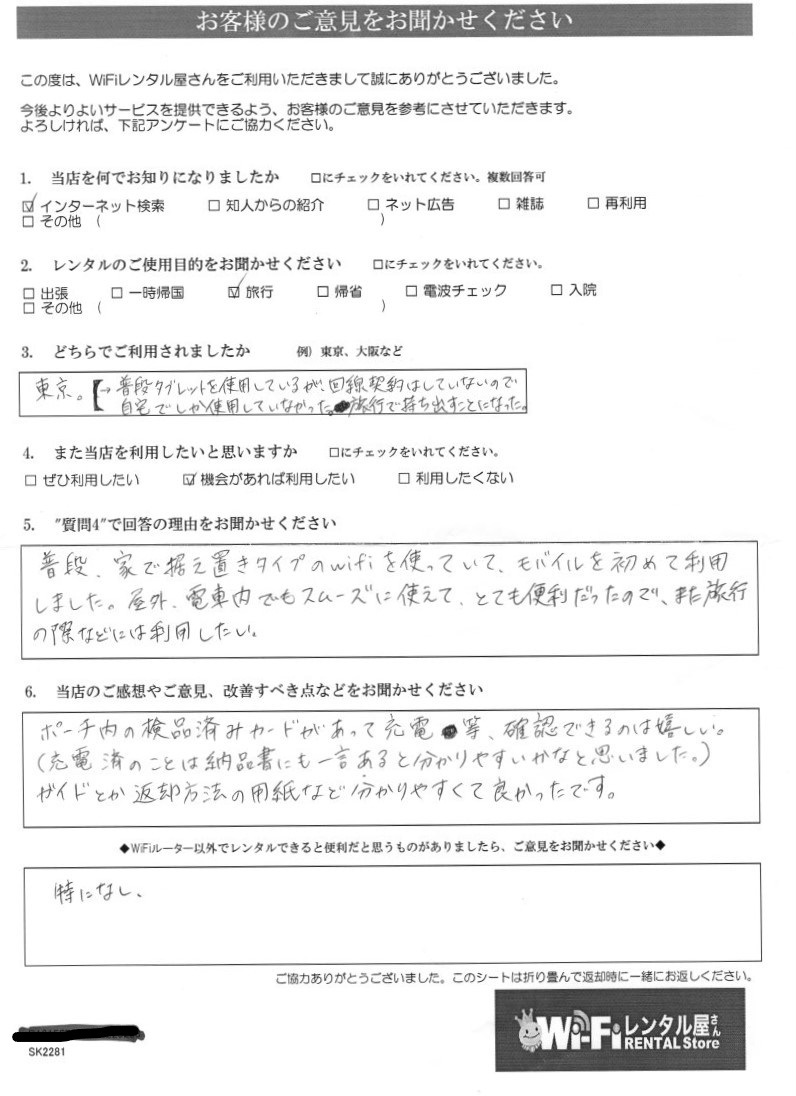 お客様のご意見をお聞かせください
この度は、WiFiレンタル屋さんをご利用いただきまして誠にありがとうございました。
今後よりよいサービスを提供できるよう、お客様のご意見を参考にさせていただきます。
よろしければ、下記アンケートにご協力ください。
1. 当店を何でお知りになりましたか □にチェックをいれてください。複数回答可
☑ インターネット検索 □ 知人からの紹介 □ ネット広告 □ 雑誌 □ 再利用
□ その他 ( )
2. レンタルのご使用目的をお聞かせください □にチェックをいれてください。
□ 出張 □ 一時帰国 ☑ 旅行 □ 帰省 □ 電波チェック □ 入院
□ その他 ( )
3. どちらでご利用されましたか 例）東京、大阪など
東京。 → 普段タブレットを使用しているが、回線契約はしていないので
自宅でしか使用していなかった。旅行で持ち出すことになった。
4. また当店を利用したいと思いますか □にチェックをいれてください。
□ ぜひ利用したい ☑ 機会があれば利用したい □ 利用したくない
5. "質問4"で回答の理由をお聞かせください
普段、家で据え置きタイプのwifiを使っていて、モバイルを初めて利用
しました。屋外、電車内でもスムーズに使えて、とても便利だったので、また旅行
の際などには利用したい。
6. 当店のご感想やご意見、改善すべき点などをお聞かせください
ポーチ内の検品済みカードがあって充電等、確認できるのは嬉しい。
(充電済のことは納品書にも一言あると分かりやすいかなと思いました。)
ガイドとか返却方法の用紙など分かりやすくて良かったです。
◆WiFiルーター以外でレンタルできると便利だと思うものがありましたら、ご意見をお聞かせください◆
特になし、
ご協力ありがとうございました。このシートは折り畳んで返却時に一緒にお返しください。
Wi-Fiレンタル屋さん
RENTAL Store
SK2281